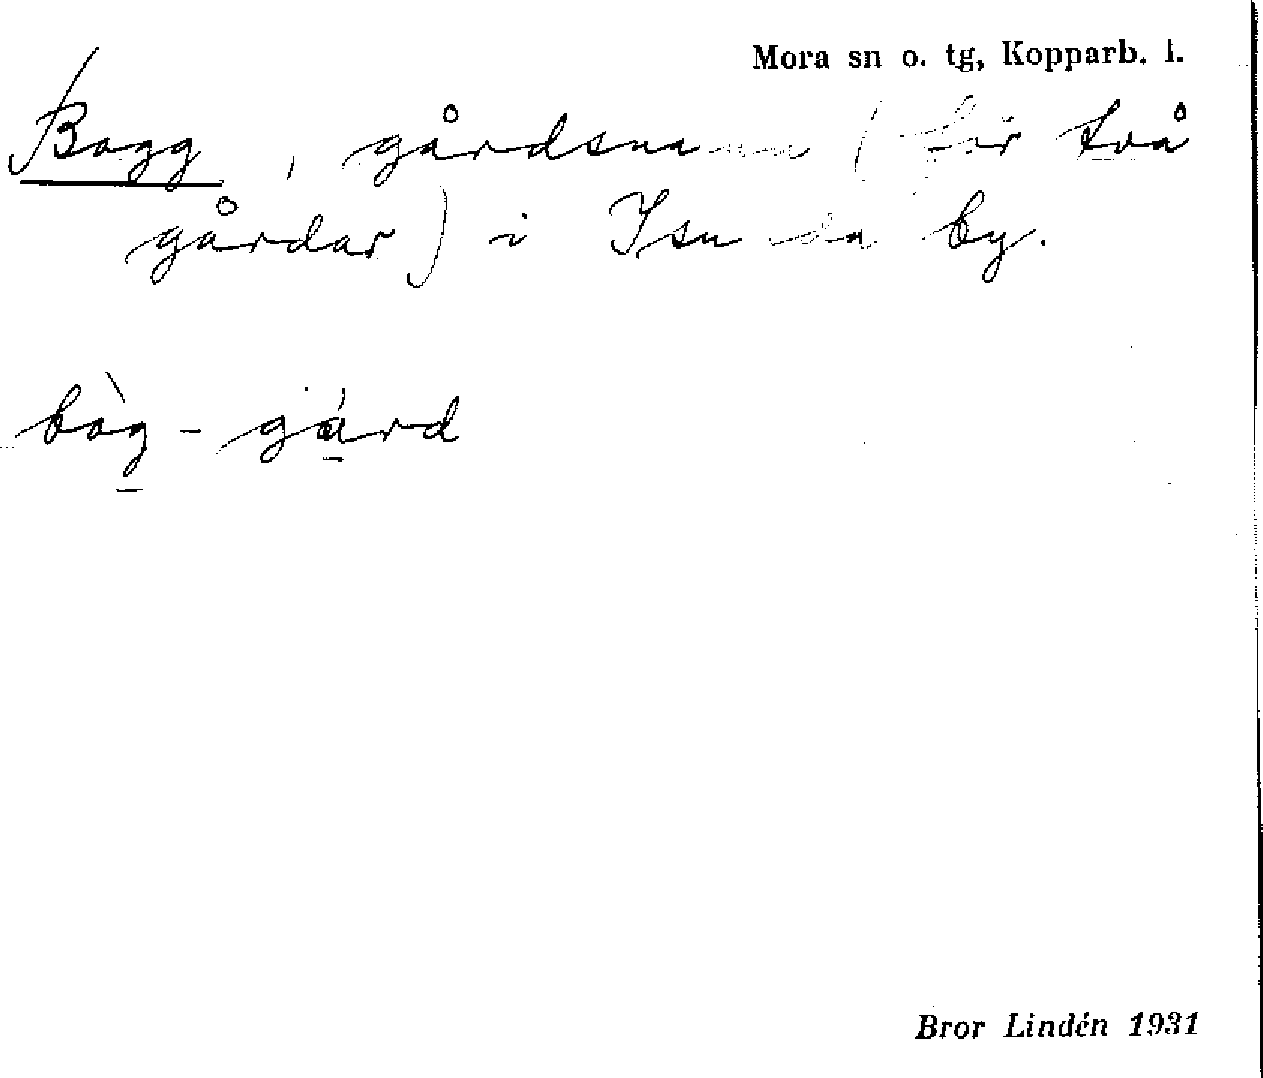 Mora sn o. tg, Kopparb. l.
Bagg, gårdsnamn (för två
gårdar) i Isunda by.
bàg-gárd
Bror Lindén 1931